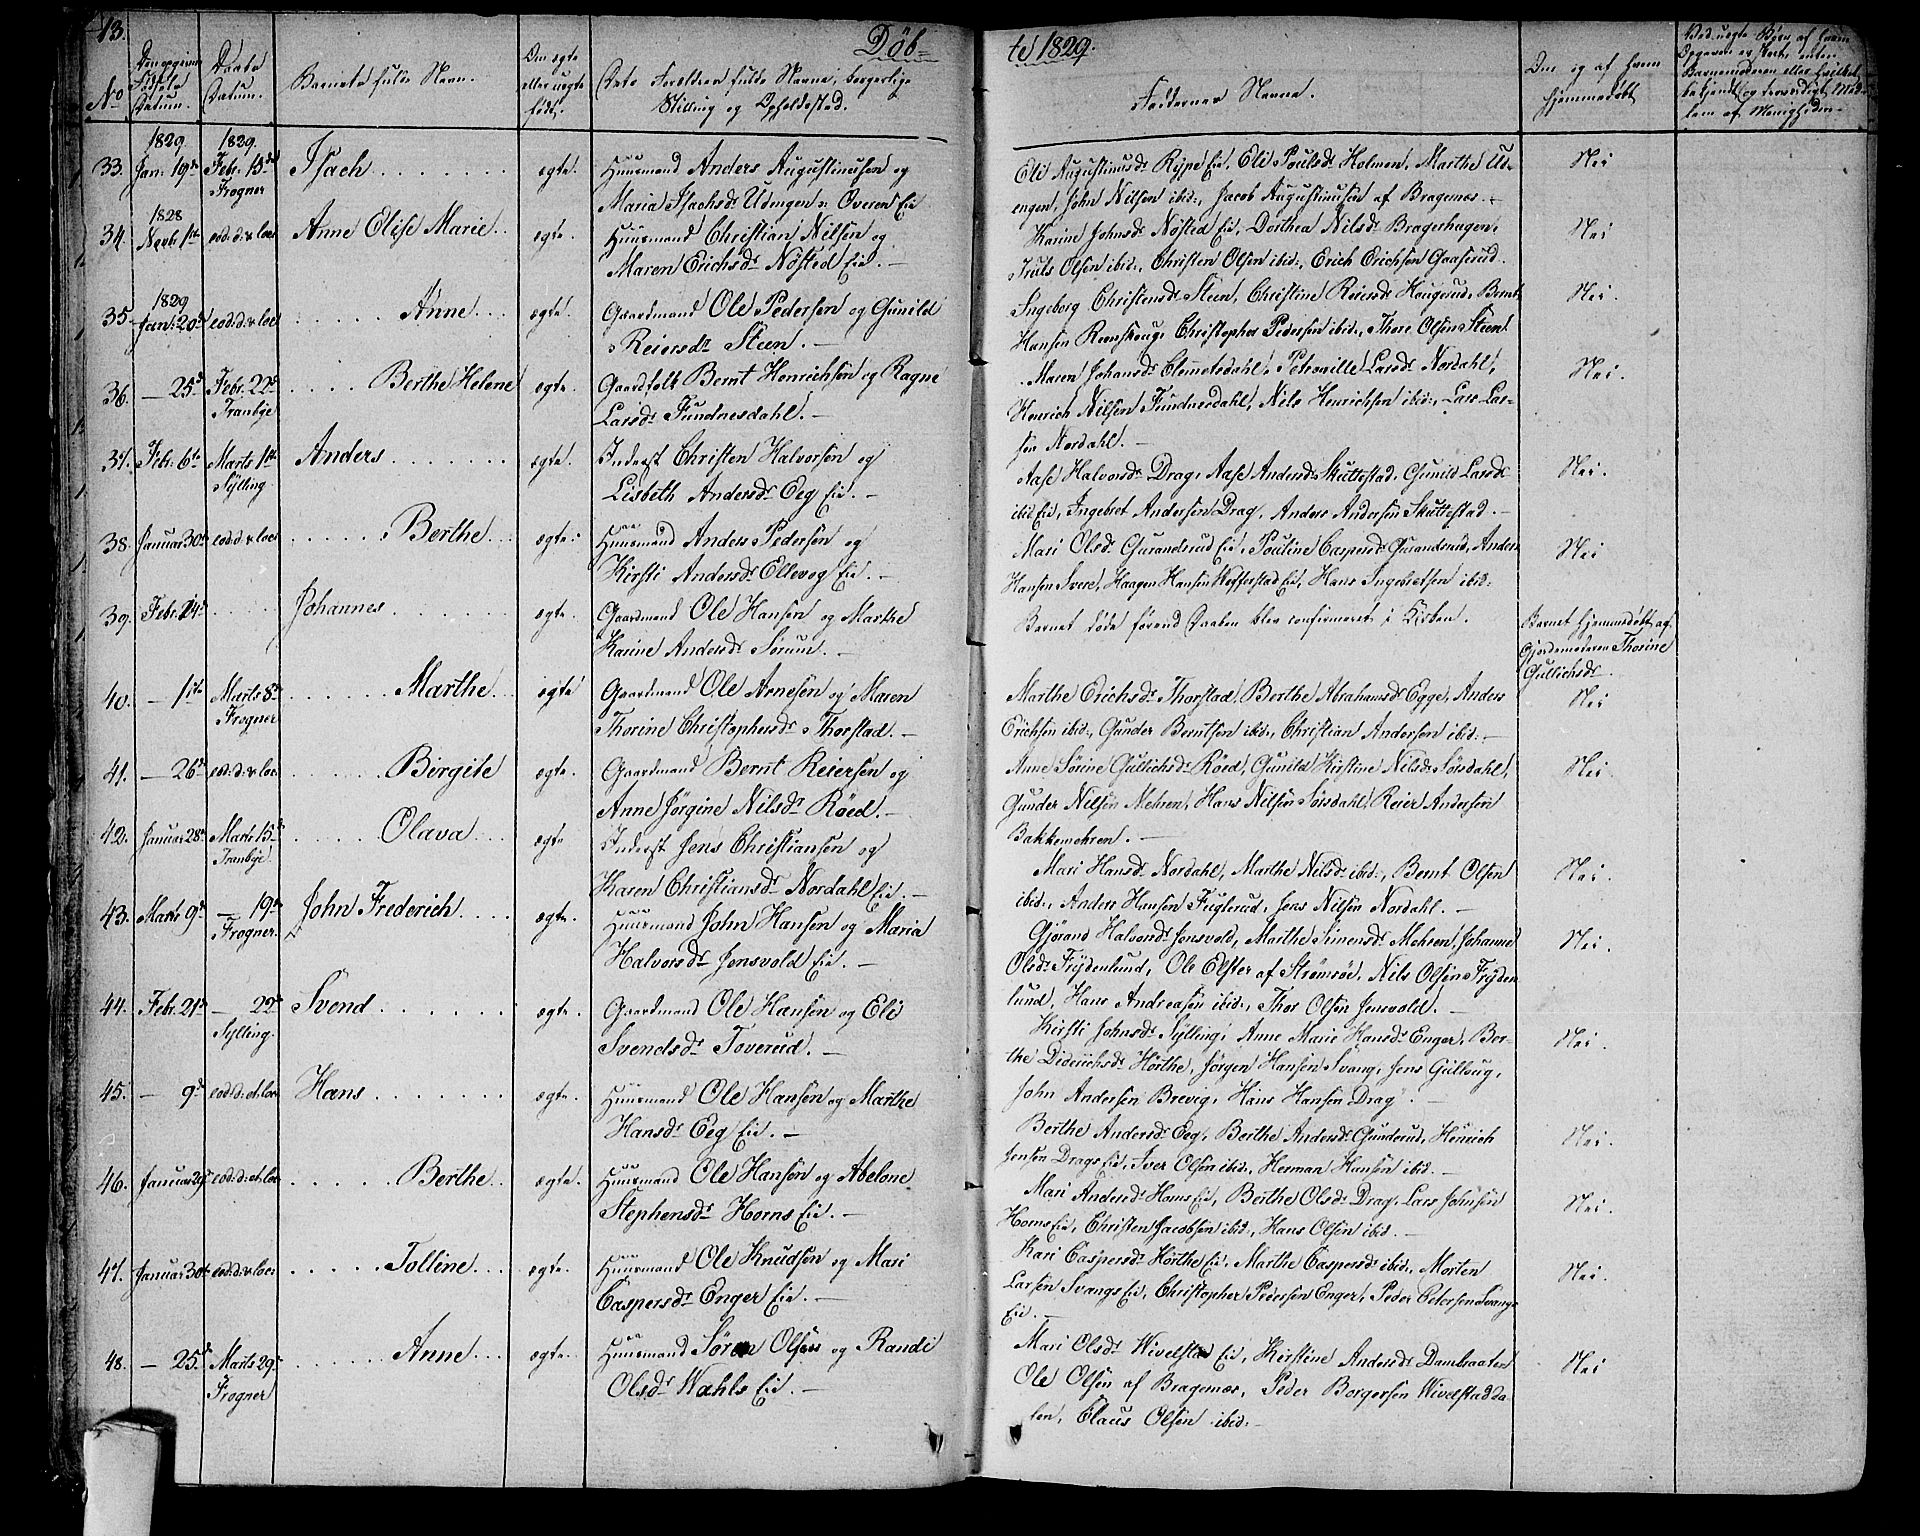 13.
Döb-
te 1829.
No
Den opgivne Fødsels Datum.
Daabs Datum.
Barnets fulde Navn.
Om ægte eller uægte født.
Dets Forældres fulde Navne, borgerlige Stilling og Opholdssted.
Faddernes Navne.
Om og af hvem hjemmedøbt
33. 1829 Jan: 19de 1829. Febr. 15de Frogner Isach ægte. Huusmand Anders Augustinusen og
Maria Isachsd: Udengen u: Overen Eie
Eli Augustinusd: Rype Eie, Eli Poulsd: Holmen, Marthe Ud-
engen, John Nilsen ibid:, Jacob Augustinusen af Bragernæs.
Nei
34. 1828 Novbr: 1te eod: d: & loco Anne Elise Marie ægte. Huusmand Christian Nilsen og
Maren Erichsd: Nøsted Eie.
Karine Johnsd: Nøsted Eie, Dorthea Nilsd: Bragerhagen,
Truls Olsen ibid:, Christen Olsen ibid:, Erich Erichsen Gaaserud.
Nei
35. 1829 Jan: 20de eod: d: & loco Anne ægte. Gaardmand Ole Pedersen og Gunild
Reiersd: Steen.
Ingeborg Christensd: Steen, Christine Reiersd: Haugerud, Bernt
Hansen Reenskoug, Christopher Pedersen ibid:, Thore Olsen Steen.
Nei.
36. — 25de Febr. 22de Tranbye Berthe Helene ægte. Gaardfolk Bernt Henrichsen og Ragne
Larsd: Fundnesdahl.
Maren Johansd: Clemetsdahl, Petronille Larsd: Nordahl,
Henrich Nilsen Fundnesdahl, Nils Henrichsen ibid:, Lars Lar-
sen Nordahl.
Nei.
37. Febr: 6te Marts 1te Sylling Anders ægte. Inderst Christen Halvorsen og
Lisbeth Andersd: Eeg Eie.
Aase Halvorsd: Drag, Aase Andersd: Skuttestad, Gunild Larsd:
ibid Eie, Ingebret Andersen Drag, Anders Andersen Skuttestad.
Nei.
38. Januar 30te eod: d: & loco Berthe ægte. Huusmand Anders Pedersen og
Kirsti Andersd: Ellevog Eie.
Mari Olsd: Gurandsrud Eie, Pouline Caspersd: Gurandsrud, Anders
Hansen Svere, Haagen Hansen Kefferstad Eie, Hans Ingebretsen ibid:
Nei
39. Febr: 14de Johannes ægte. Gaardmand Ole Hansen og Marthe
Karine Andersd: Sørum.
Barnet døde førend Daaben blev confirmeret i Kirken.
Barnet hjemmedøbt af
Gjordemoderen Thorine
Gullichsd:
40. — 1ste Marts 8de Frogner Marthe ægte Gaardmand Ole Arnesen og Maren
Thorine Christophersd: Thorstad.
Marthe Erichsd: Thorstad, Berthe Abrahamsd: Egge, Anders
Erichsen ibid:, Gunder Berntsen ibid:, Christian Andersen ibid:
Nei
41. — 26de eod: d: & loco Birgite ægte. Gaardmand Bernt Reiersen og
Anne Jørgine Nilsd: Røed.
Anne Sørine Gullichsd: Røed, Gunild Kirstine Nilsd: Sørsdahl,
Gunder Nilsen Mehren, Hans Nilsen Sørsdahl, Reier Andersen
Bakkemehren.
Nei.
42. Januar 28de Marts 15de Tranbye Olava ægte Inderst Jens Christiansen og
Karen Christiansd: Nordahl Eie.
Mari Hansd: Nordahl, Marthe Nilsd: ibid:, Bernt Olsen
ibid:, Anders Hansen Fuglerud, Jens Nilsen Nordahl.
Nei.
43. Marts 9de — 19de Frogner. John Frederich ægte. Huusmand John Hansen og Maria
Halvorsd: Jonsvold Eie.
Gjørand Halvorsd: Jonsvold, Marthe Simensd: Mehren, Johanne
Olsd: Frydenlund, Ole Elster af Strømsøe, Nils Olsen Fryden
lund, Hans Andreasen ibid:, Thor Olsen Jonsvold.
Nei.
44. Febr. 21de — 22de Sylling. Svend ægte. Gaardmand Ole Hansen og Eli
Svendsd: Toverud.
Kirsti Johnsd: Sylling, Anne Marie Hansd: Enger, Ber-
the Dideriichsd: Hørthe, Jørgen Hansen Svang, Jens Gulloug,
John Andersen Brevig, Hans Hansen Drag.
Nei.
45. — 9de eod: d: et loco Hans ægte. Huusmand Ole Hansen og Marthe
Hansd: Eeg Eie.
Berthe Andersd: Eeg, Berthe Andersd: Gunderud, Henrich
Jensen Drags Eie, Iver Olsen ibid:, Herman Hansen ibid.
Nei.
46. Januar 29de eod: d: et loco Berthe ægte. Huusmand Ole Hansen og Abelone
Stephensd: Horns Eie.
Mari Andersd: Horns Eie, Berthe Olsd: Drag, Lars Johnsen
Horns Eie, Christen Jacobsen ibid:, Hans Olsen ibid.
Nei.
47. Januar 30te eod: d: & loco Tolline ægte. Huusmand Ole Knudsen og Mari
Caspersd: Enger Eie.
Kari Caspersd: Hørthe Eie, Marthe Caspersd: ibid:, Morten
Larsen Svangs Eie, Christopher Pedersen Enger, Peder Petersen Svangs
Eie.
Nei.
48. — 25de Marts 29de Frogner Anne ægte. Huusmand Søren Olsen og Randi
Olsd: Wahls Eie.
Mari Olsd: Wivelstad Eie, Kirstine Andersd: Dambraaten
Ole Olsen af Bragernæs, Peder Borgersen Wivelstadda-
len, Claus Olsen ibid:
Nei